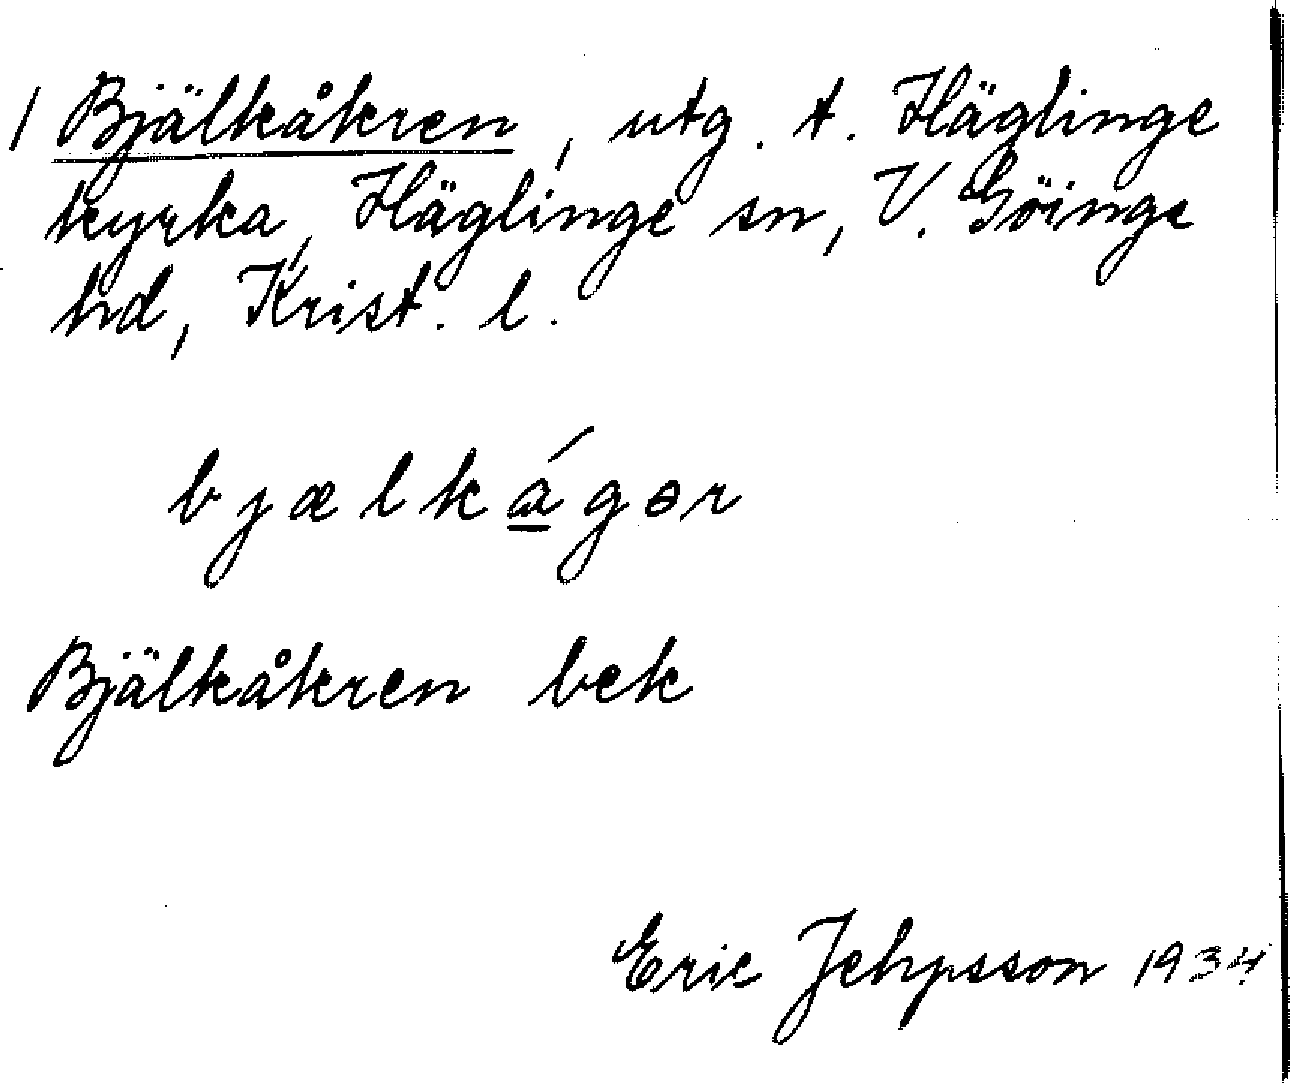 1 Bjälkåkren, utg. t. Häglinge
kyrka, Häglinge sn, V. Göinge
hd, Krist. l.
bjælkágər
Bjälkåkren bek
Eric Jehpsson 1934